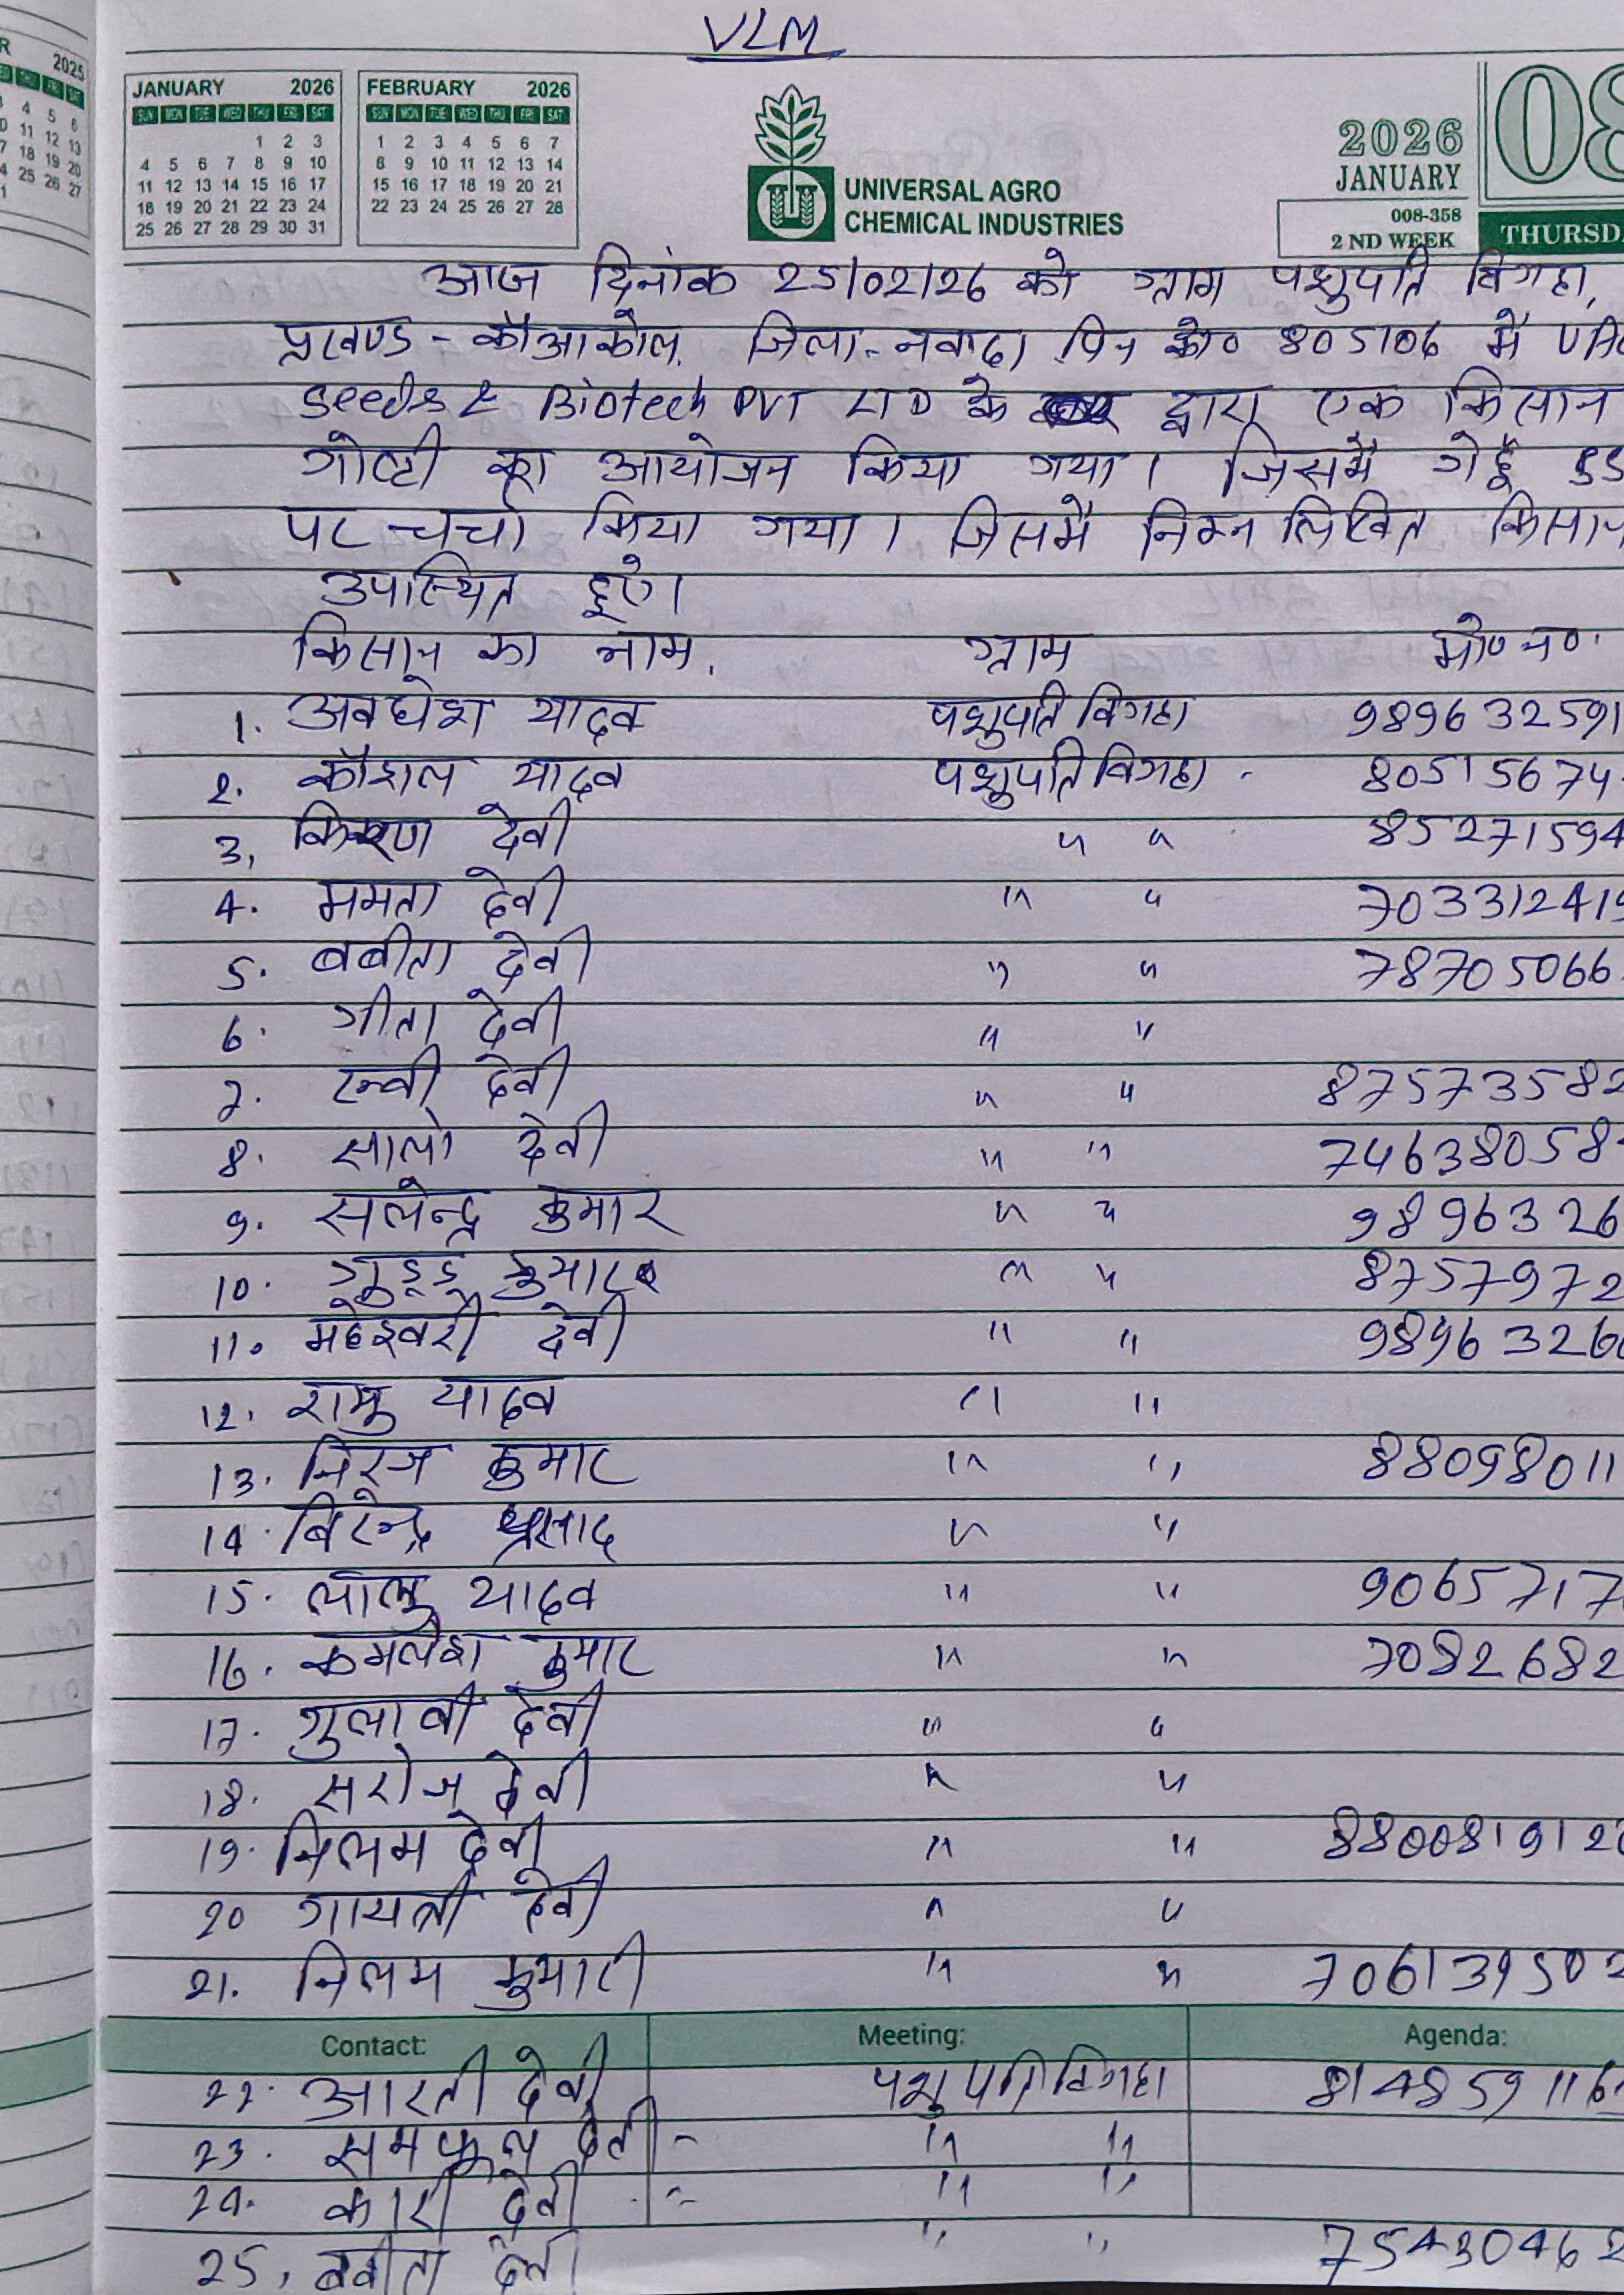 VLM
2025
JANUARY 2026
SUN MON TUE WED THU FRI SAT
1 2 3
4 5 6 7 8 9 10
11 12 13 14 15 16 17
18 19 20 21 22 23 24
25 26 27 28 29 30 31
FEBRUARY 2026
SUN MON TUE WED THU FRI SAT
1 2 3 4 5 6 7
8 9 10 11 12 13 14
15 16 17 18 19 20 21
22 23 24 25 26 27 28
UNIVERSAL AGRO
CHEMICAL INDUSTRIES
2026
JANUARY
008-358
2 ND WEEK
08
THURSD
आज दिनांक 25/02/26 को ग्राम पशुपति बिगहा,
प्रखण्ड - कौआकोल, जिला - नवादा पिन को० 805106 में
Seeds & Biotech PVT LTD के द्वारा एक किसान
गोष्टी का आयोजन किया गया। जिसमें गेहूँ
पर चर्चा किया गया। जिसमें निम्न लिखित किसान
उपस्थित हुए।
किसान का नाम. ग्राम मो० न०.
1. अवधेश यादव पशुपति बिगहा 989632591
2. कौशल यादव पशुपति बिगहा - 80515674
3, किरण देवी " " 85271594
4. ममता देवी " " 703312419
5. बबीता देवी " " 78705066
6. गीता देवी " "
7. रन्वी देवी " " 87573582
8. सालो देवी " " 746380584
9. सत्येन्द्र कुमार " " 9896326
10. गुड्डू कुमार " " 8757972
11. महेश्वरी देवी " " 98963266
12. रामु यादव " "
13. निरज कुमार " " 88098011
14. बिरेन्द्र प्रसाद " "
15. लालु यादव " " 9065717
16. कमलेश कुमार " " 7082682
17. गुलाबी देवी " "
18. सरोज देवी " "
19. निलम देवी " " 880081912
20 गायत्री देवी " "
21. निलम कुमारी " " 706139502
Contact: Meeting: Agenda:
22. आरती देवी पशुपति बिगहा 814859116
23. समफूल देवी - " "
24. कारी देवी " "
25, बबीता देवी " " 75430462